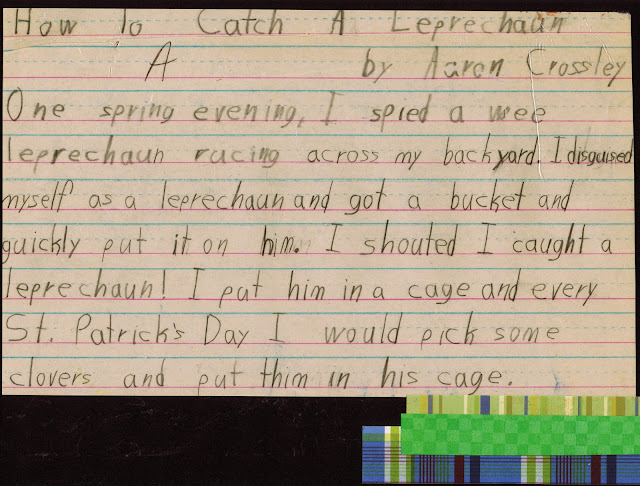 How To Catch A Leprechaun
A by Aaron Crossley
One spring evening, I spied a wee
leprechaun racing across my backyard. I disguised
myself as a leprechaun and got a bucket and
quickly put it on him. I shouted I caught a
leprechaun! I put him in a cage and every
St. Patrick's Day I would pick some
clovers and put thim in his cage.